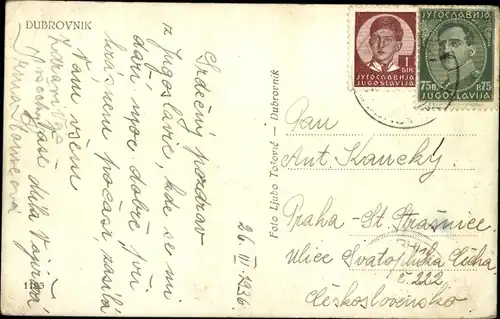 DUBROVNIK
Srdečný pozdrav
z Jugoslavie, kde se mi
daří moc dobře při
krásném počasí zasílá
Vám všem
Vaše
1185
26. III. 1936.
Foto Ljubo Tošović – Dubrovnik
1 DIN.
ЈУГОСЛАВИЈА
JUGOSLAVIJA
75П. P.75
ЈУГОСЛАВИЈА
JUGOSLAVIJA
Pan
Ant. Kancký
Praha - St. Strašnice
Ulice Svatopluka Čecha
č. 222
Československo